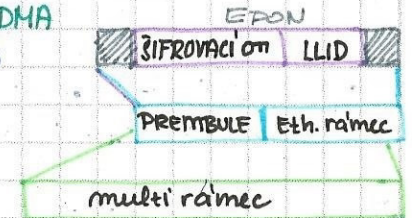 DMA
EPON
ŠIFROVACÍ on LLID
PREMBULE Eth. rámec
multi rámec